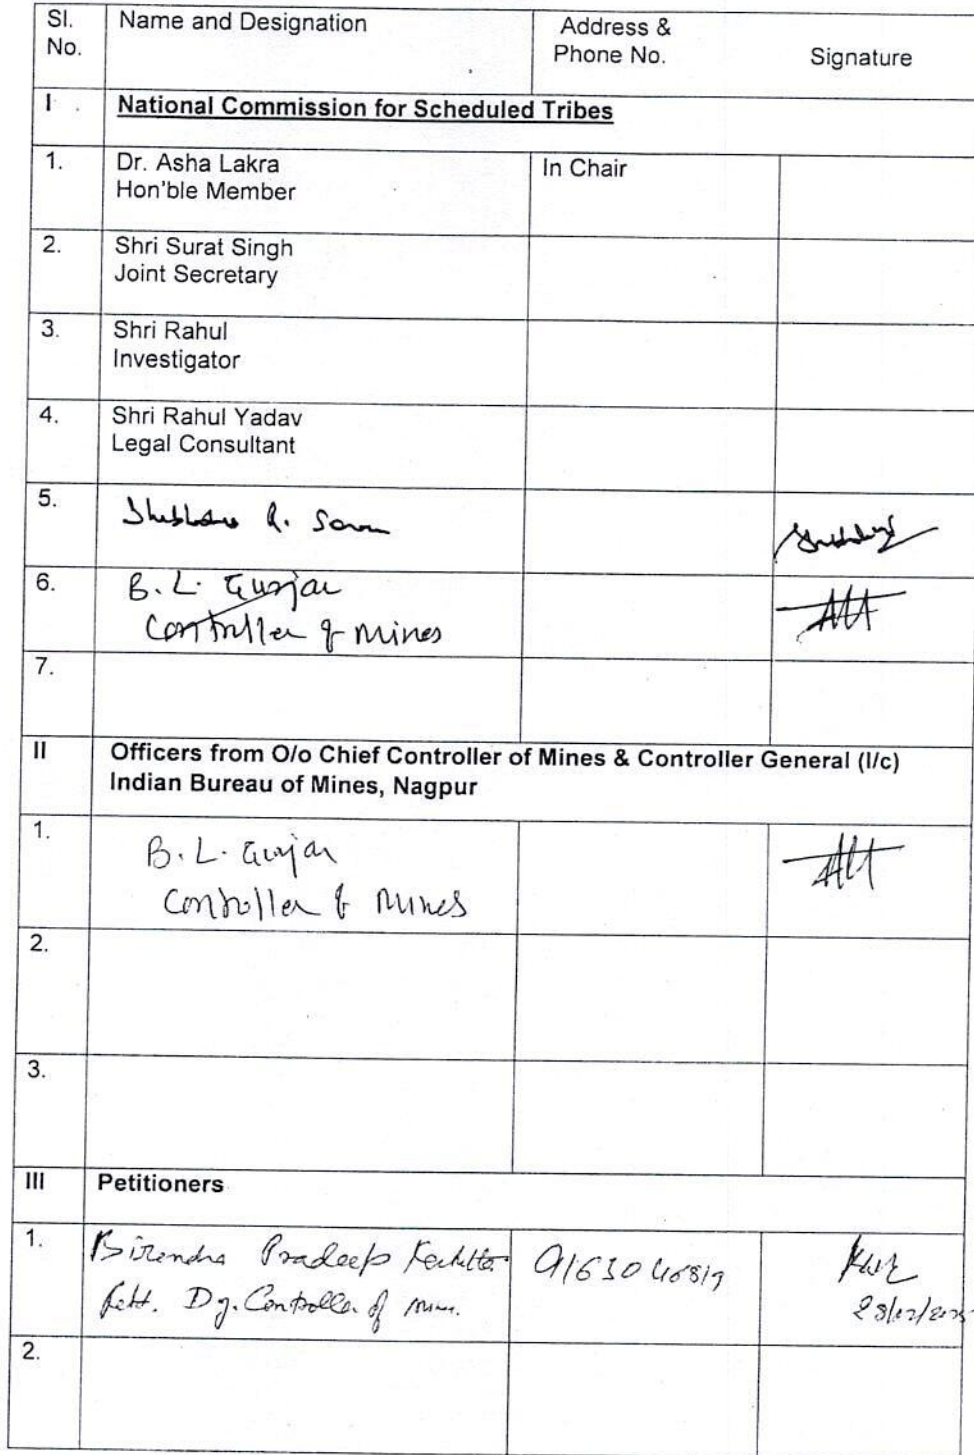 Sl. No. Name and Designation Address & Phone No. Signature
I National Commission for Scheduled Tribes
1. Dr. Asha Lakra In Chair
Hon'ble Member
2. Shri Surat Singh
Joint Secretary
3. Shri Rahul
Investigator
4. Shri Rahul Yadav
Legal Consultant
5. R.
6. B. L. Gurjar
Controller of Mines
7.
II Officers from O/o Chief Controller of Mines & Controller General (I/c)
Indian Bureau of Mines, Nagpur
1. B. L. Gurjar
Controller of Mines
2.
3.
III Petitioners
1. Birendra Pradeep
Dy. Controller of
2.